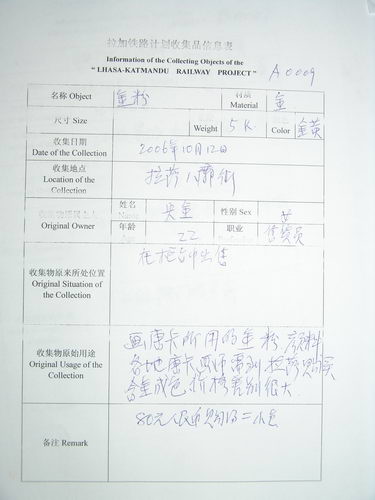 拉加铁路计划收集品信息表
Information of the Collecting Objects of the
"LHASA-KATMANDU RAILWAY PROJECT" A0009
名称 Object 金粉 材质 Material 金
尺寸 Size Weight 5K Color 金黄
收集日期
Date of the Collection 2006年10月12日
收集地点
Location of the
Collection 拉萨八廓街
Original Owner 姓名 性别 Sex 女
年龄 22 职业 售货员
收集物原来所处位置
Original Situation of
the Collection 在柜台中出售
收集物原始用途
Original Usage of the
Collection
画唐卡所用的金粉颜料
各地唐卡画师需到拉萨购买
含金成色价格差别很大
备注 Remark 80元人民币购得一小包